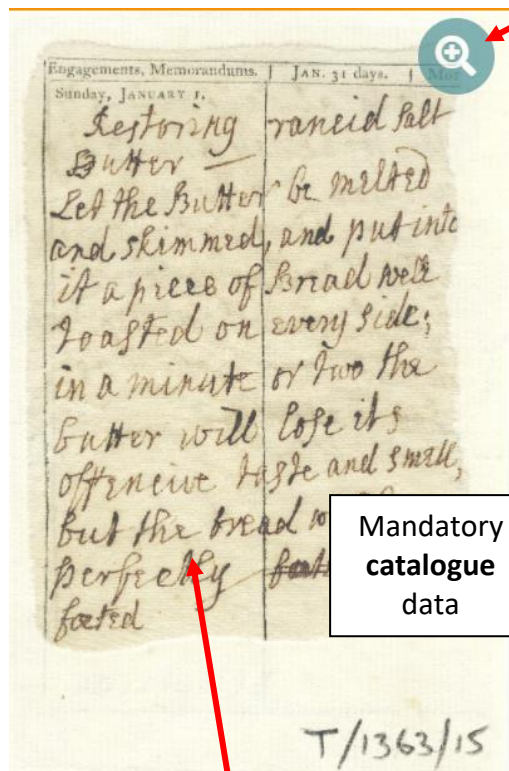 Engagements, Memorandums. | JAN. 31 days. | Mor
Sunday, JANUARY 1.
Restoring rancid Salt
Butter —
Let the Butter be melted
and skimmed, and put into
it a piece of Bread well
toasted on every side;
in a minute or two the
butter will lose its
offencive taste and smell,
but the bread w
perfectly
foeted
Mandatory
catalogue
data
T/1363/15